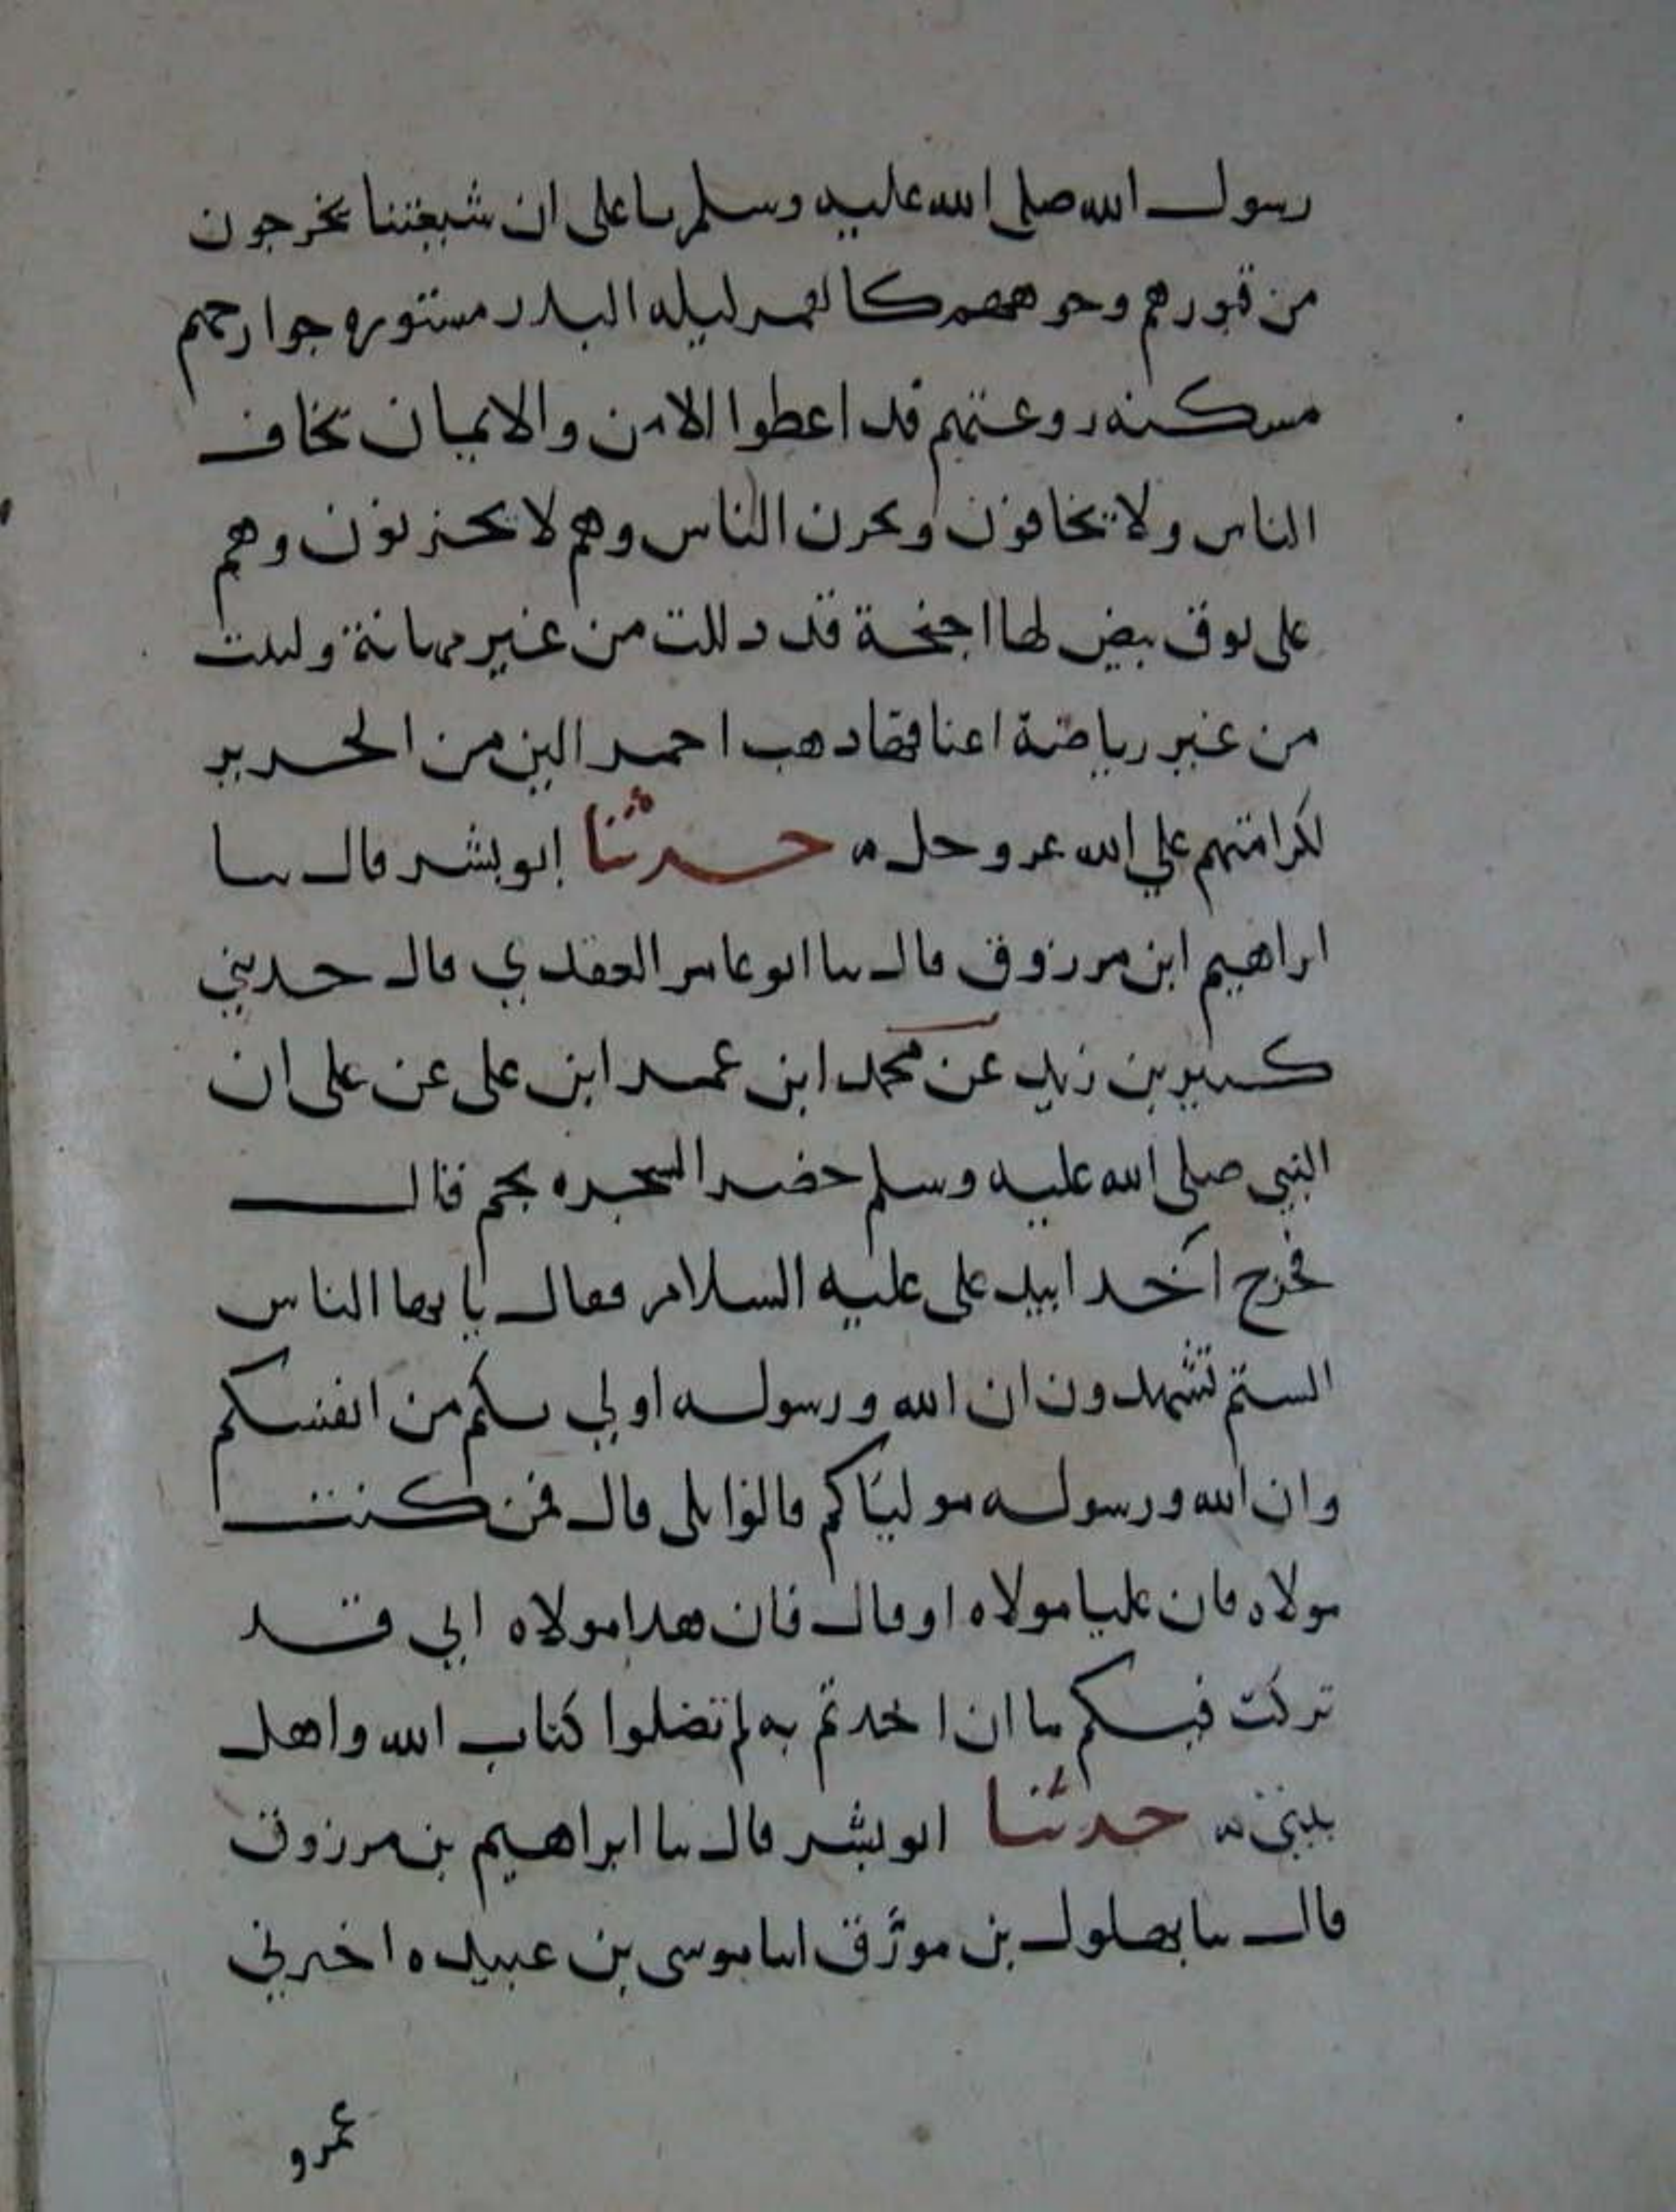 رسول الله صلى الله عليه وسلم يا على ان شيعتنا يخرجون
من قبورهم وجوههم كالقمر ليله البدر مستوره جوارحهم
مسكنه روعتهم قد اعطوا الامن والايمان تخاف
الناس ولا يخافون ويحزن الناس وهم لا يحزنون وهم
على نوق بيض لها اجنحة قد دللت من غير مهانة ولينت
من غير رياضة اعناقها دهب احمر الين من الحرير
لكرامتهم علي الله عز وجل حدثنا ابو بشر قال نا
ابراهيم ابن مرزوق قال نا ابو عامر العقدي قال حدثني
كثير بن زيد عن محمد ابن عمر ابن على عن على ان
النبي صلى الله عليه وسلم حضر الشجره بخم قال
فخرج آخدا بيد على عليه السلام فقال يا يها الناس
الستم تشهدون ان الله ورسوله اولي بكم من انفسكم
وان الله ورسوله موليناكم قالوا بلى قال فمن كنت
مولاه فان عليا مولاه او قال فان هدا مولاه اني قد
تركت فيكم ما ان اخدتم به لم تضلوا كتاب الله واهل
بيتي حدثنا ابو بشر قال نا ابراهيم بن مرزوق
قال نا بهلول بن مورق انبا موسى بن عبيده اخبرني
عمرو